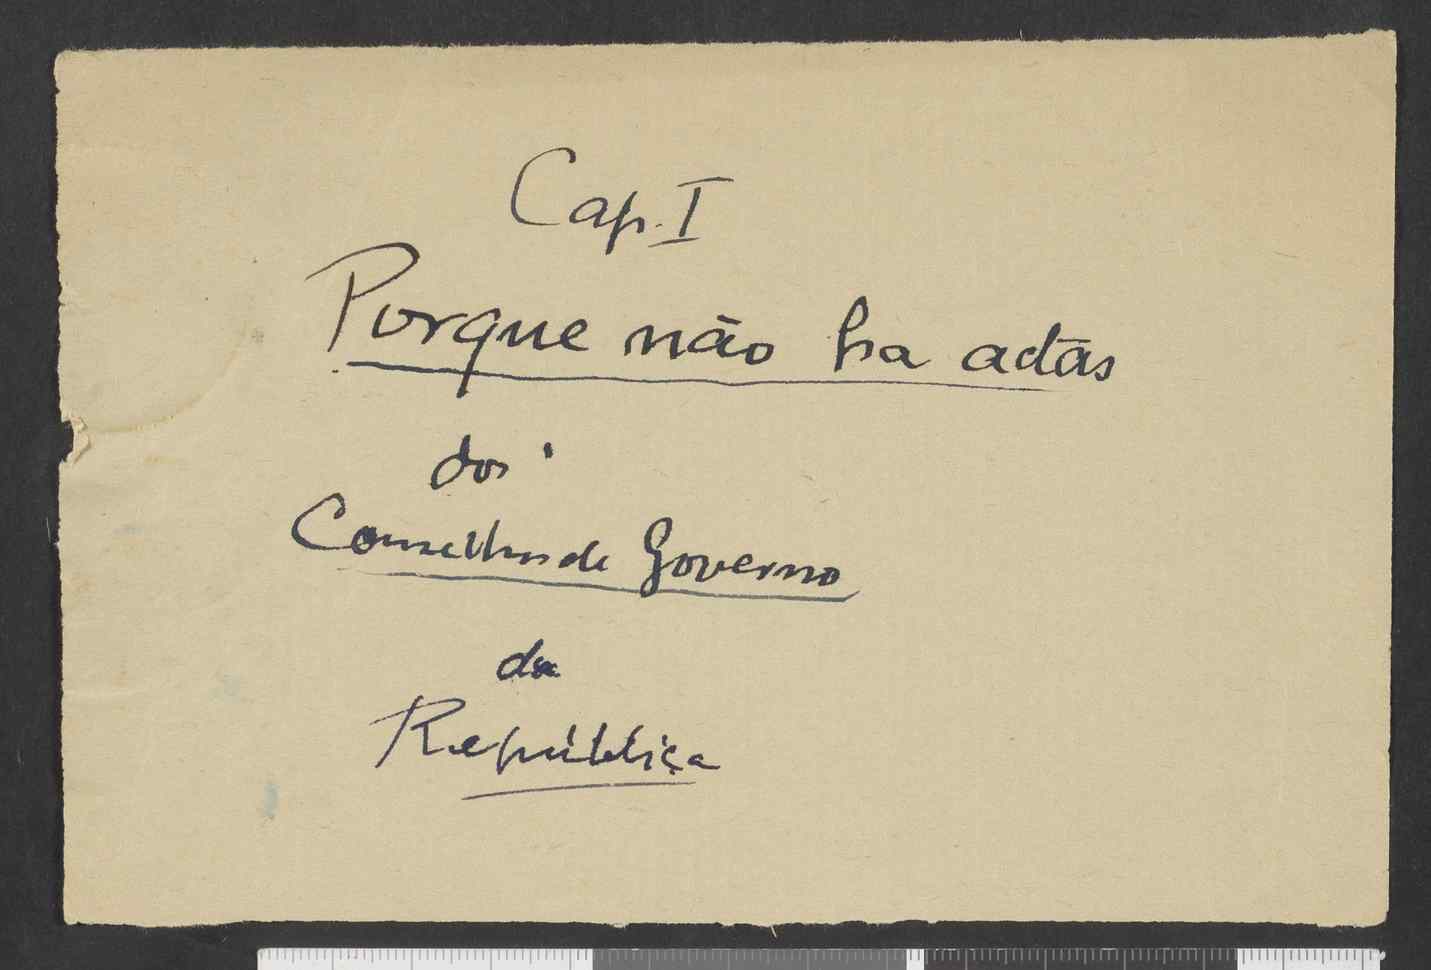 Cap. I
Porque não ha actas
dos
Conselhos de Governo
da
República